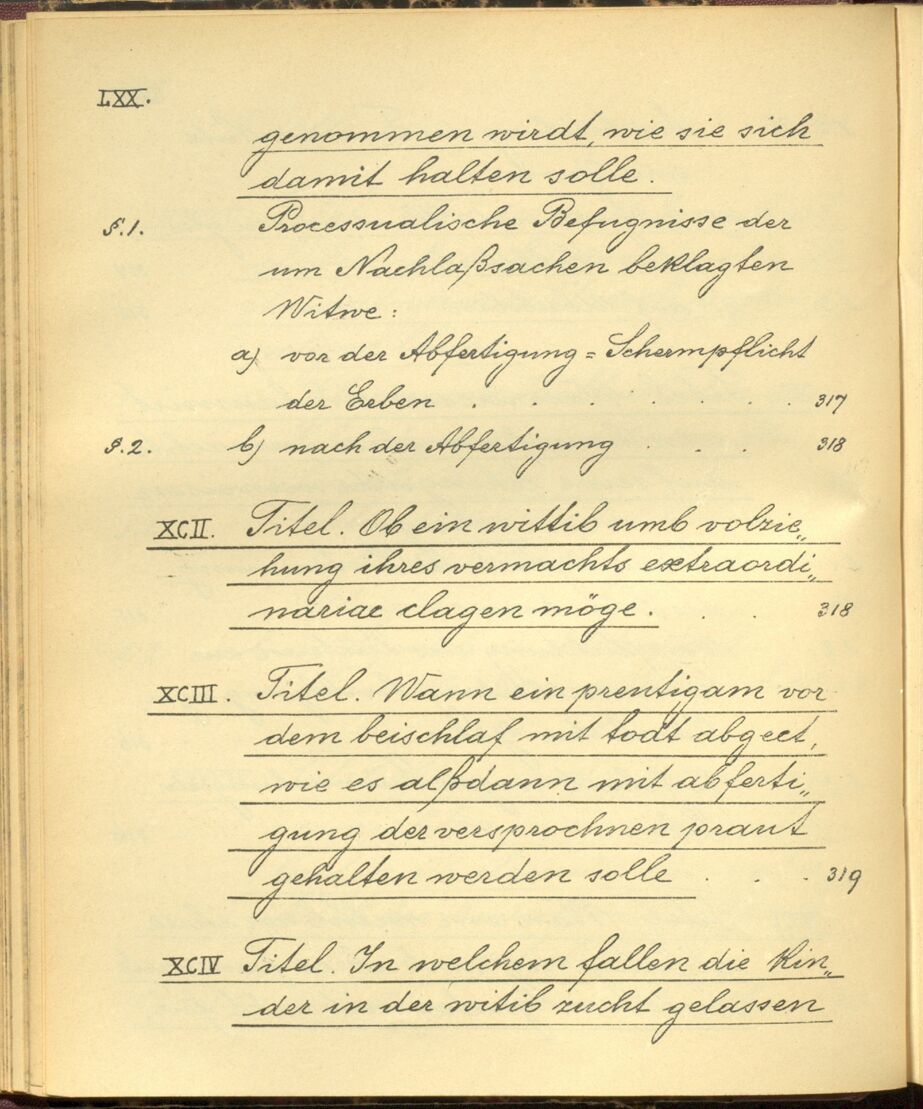 LXX.
genommen wirdt, wie sie sich
damit halten solle.
§.1. Processualische Befugnisse der
um Nachlaßsachen beklagten
Witwe:
a) vor der Abfertigung = Schermpflicht
der Erben . . . . . . . 317
§.2. b) nach der Abfertigung . . . 318
XCII. Titel. Ob ein wittib umb volzie„
hung ihres vermachts extraordi„
nariae clagen möge. . . 318
XCIII. Titel. Wann ein preutigam vor
dem beischlaf mit todt abgeet,
wie es alßdann mit abferti„
gung der versprochnen praut
gehalten werden solle . . . 319
XCIV Titel. In welchem fallen die Kin„
der in der witib zucht gelassen